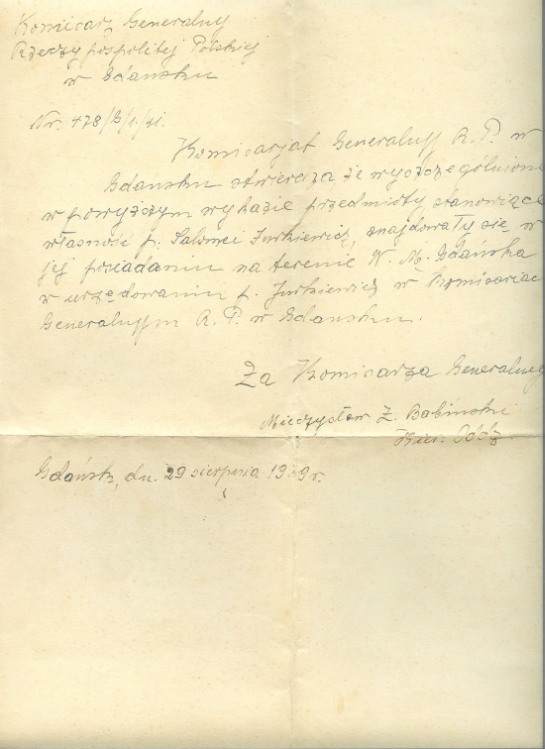 Komisarz Generalny
Rzeczypospolitej Polskiej
w Gdańsku
Nr. 478/B/1/41.
Komisarjat Generalny R. P. w
Gdańsku stwierdza że wyszczególnione
w powyższym wykazie przedmioty stanowiące
własność p. Salomei Jurkiewicz, znajdowały się w
jej posiadaniu na terenie W. M. Gdańska
w urzędowaniu p. Jurkiewicz w Komisariacie
Generalnym R. P. w Gdańsku.
Za Komisarza Generalnego
Mieczysław Z. Babiński
Kier. Oddz.
Gdańsk, dn. 29 sierpnia 1939 r.